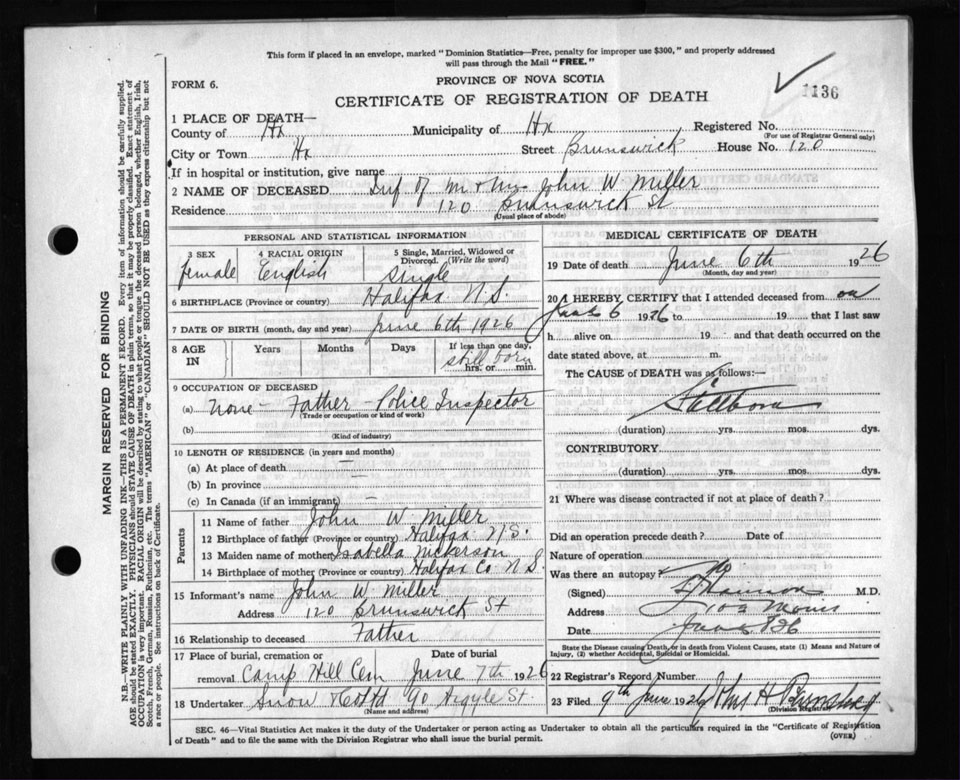 This form if placed in an envelope, marked "Dominion Statistics—Free, penalty for improper use $300," and properly addressed
will pass through the Mail "FREE."
FORM 6.
PROVINCE OF NOVA SCOTIA
1136
CERTIFICATE OF REGISTRATION OF DEATH
1 PLACE OF DEATH—
County of Hx Municipality of Hx Registered No.
(For use of Registrar General only)
City or Town Hx Street Brunswick House No. 120
If in hospital or institution, give name
2 NAME OF DECEASED Inf of Mr & Mrs John W Miller
Residence 120 Brunswick St
(Usual place of abode)
PERSONAL AND STATISTICAL INFORMATION
3 SEX 4 RACIAL ORIGIN 5 Single, Married, Widowed or
Divorced (Write the word)
female English Single
6 BIRTHPLACE (Province or country) Halifax N.S.
7 DATE OF BIRTH (month, day and year) June 6th 1926
8 AGE IN Years Months Days If less than one day,
still born
hrs. or min.
9 OCCUPATION OF DECEASED
(a) None - Father - Police Inspector
(Trade or occupation or kind of work)
(b)
(Kind of industry)
10 LENGTH OF RESIDENCE (in years and months)
(a) At place of death —
(b) In province
(c) In Canada (if an immigrant) —
Parents
11 Name of father John W Miller
12 Birthplace of father (Province or country) Halifax N.S.
13 Maiden name of mother Isabella Nickerson
14 Birthplace of mother (Province or country) Halifax Co N.S.
15 Informant's name John W Miller
Address 120 Brunswick St
16 Relationship to deceased Father
17 Place of burial, cremation or Date of burial
removal Camp Hill Cem June 7th 1926
18 Undertaker Snow & Co Ltd 90 Argyle St.
(Name and address)
MEDICAL CERTIFICATE OF DEATH
19 Date of death June 6th 1926
(Month, day and year)
20 I HEREBY CERTIFY that I attended deceased from on
June 6 1926 to 19 that I last saw
h alive on 19 and that death occurred on the
date stated above, at m.
The CAUSE of DEATH was as follows:—
Stillborn
(duration) yrs. mos. dys.
CONTRIBUTORY
(duration) yrs. mos. dys.
21 Where was disease contracted if not at place of death?
Did an operation precede death? Date of
Nature of operation
Was there an autopsy? No
(Signed) M.D.
Address 103 Morris
Date June 6 26
State the Disease causing Death, or in death from Violent Causes, state (1) Means and Nature of
Injury, (2) whether Accidental, Suicidal or Homicidal.
22 Registrar's Record Number
23 Filed 9th June 1926
(Division Registrar)
SEC. 46—Vital Statistics Act makes it the duty of the Undertaker or person acting as Undertaker to obtain all the particulars required in the "Certificate of Registration
of Death" and to file the same with the Division Registrar who shall issue the burial permit.
(OVER)
MARGIN RESERVED FOR BINDING
N.B.—WRITE PLAINLY WITH UNFADING INK—THIS IS A PERMANENT RECORD. Every item of information should be carefully supplied.
AGE should be stated EXACTLY. PHYSICIANS should STATE CAUSE OF DEATH in plain terms, so that it may be properly classified. Exact statement of
OCCUPATION is very important. RACIAL ORIGIN will be described by stating to what people or tongue the deceased person belonged, whether English, Irish,
Scotch, French, German, Russian, Ruthenian, etc. The terms "AMERICAN" or "CANADIAN" SHOULD NOT BE USED as they express citizenship but not
a race or people. See instructions on back of Certificate.